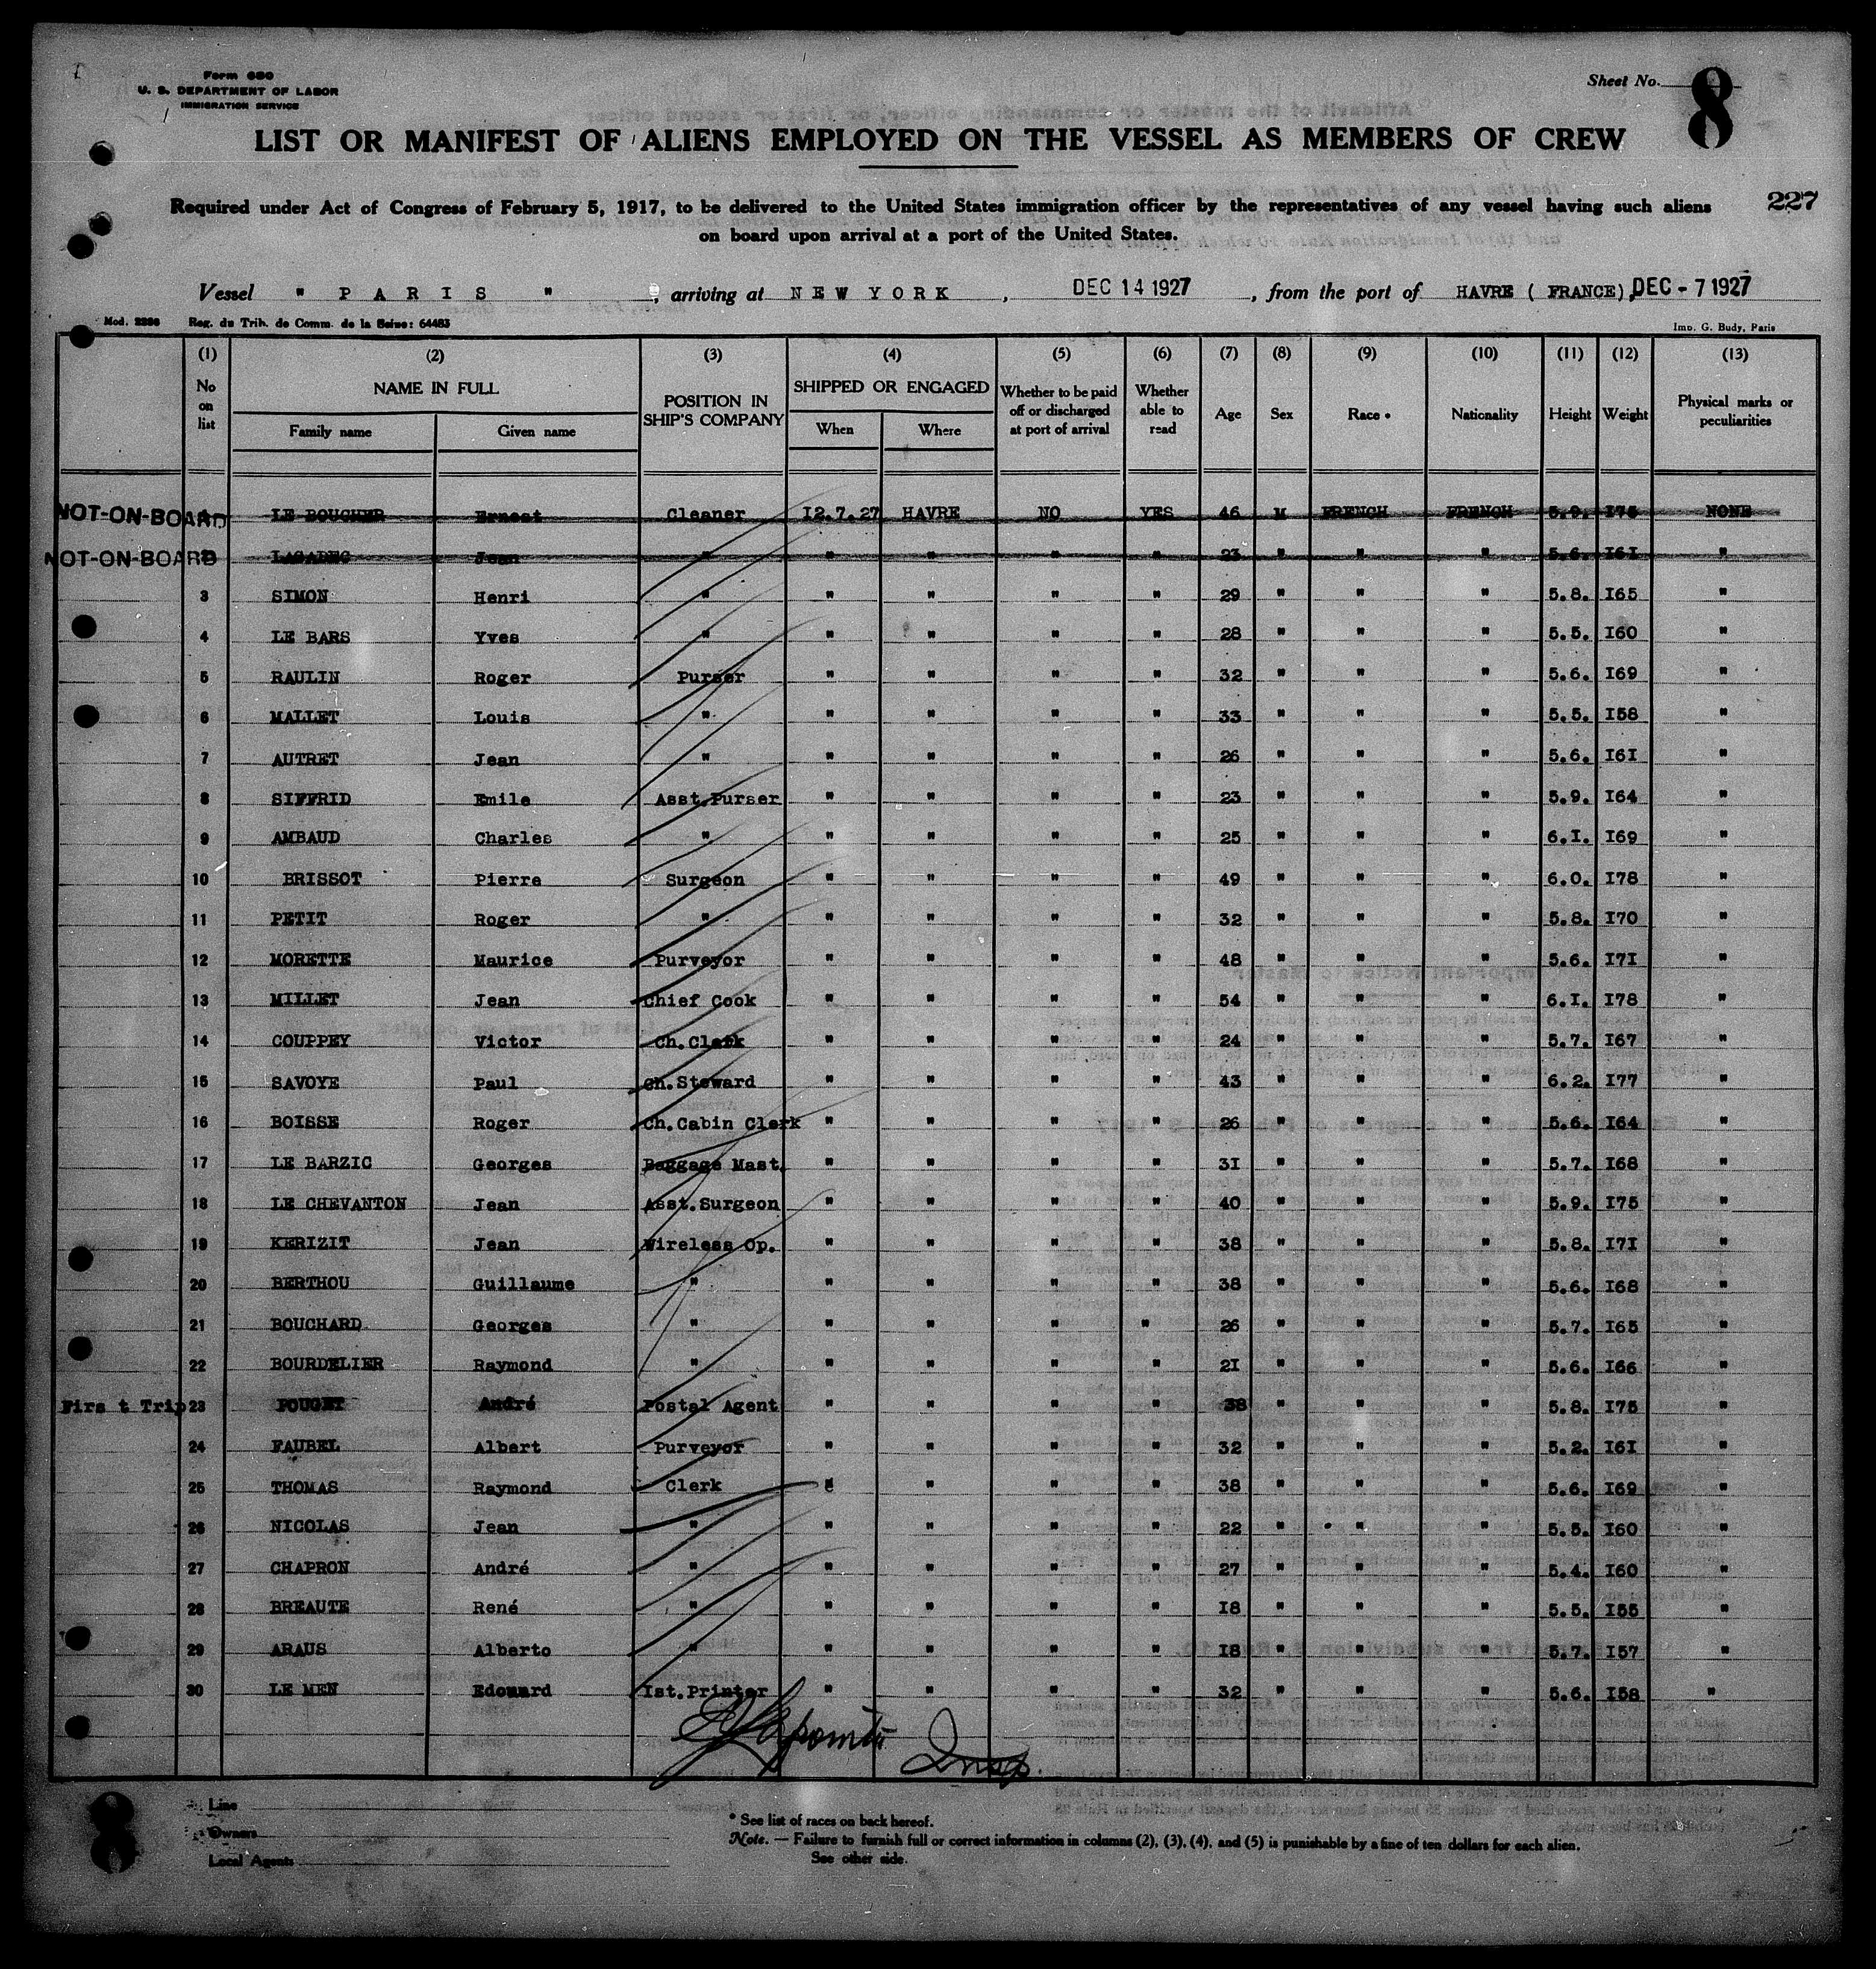 Form 680
U. S. DEPARTMENT OF LABOR
IMMIGRATION SERVICE
Sheet No. 8
LIST OR MANIFEST OF ALIENS EMPLOYED ON THE VESSEL AS MEMBERS OF CREW
227
Required under Act of Congress of February 5, 1917, to be delivered to the United States immigration officer by the representatives of any vessel having such aliens
on board upon arrival at a port of the United States.
Vessel " P A R I S " , arriving at N E W Y O R K , DEC 14 1927 , from the port of HAVRE ( FRANCE), DEC - 7 1927
Mod. 2256 Reg. du Trib. de Comm. de la Seine: 64483 Imp. G. Budy, Paris
(1) (2) (3) (4) (5) (6) (7) (8) (9) (10) (11) (12) (13)
No on list NAME IN FULL POSITION IN SHIP'S COMPANY SHIPPED OR ENGAGED Whether to be paid off or discharged at port of arrival Whether able to read Age Sex Race * Nationality Height Weight Physical marks or peculiarities
Family name Given name When Where
NOT-ON-BOARD 1 LE BOUCHER Ernest Cleaner I2.7.27 HAVRE NO YES 46 M FRENCH FRENCH 5.9. I75 NONE
NOT-ON-BOARD 2 LAGADEC Jean " " " " " 23 " " " 5.6. I6I "
3 SIMON Henri " " " " " 29 " " " 5.8. I65 "
4 LE BARS Yves " " " " " 28 " " " 5.5. I60 "
5 RAULIN Roger Purser " " " " 32 " " " 5.6. I69 "
6 MALLET Louis " " " " " 33 " " " 5.5. I58 "
7 AUTRET Jean " " " " " 26 " " " 5.6. I6I "
8 SIFFRID Emile Asst.Purser " " " " 23 " " " 5.9. I64 "
9 AMBAUD Charles " " " " " 25 " " " 6.I. I69 "
10 BRISSOT Pierre Surgeon " " " " 49 " " " 6.0. I78 "
11 PETIT Roger " " " " " 32 " " " 5.8. I70 "
12 MORETTE Maurice Purveyor " " " " 48 " " " 5.6. I7I "
13 MILLET Jean Chief Cook " " " " 54 " " " 6.I. I78 "
14 COUPPEY Victor Ch.Clerk " " " " 24 " " " 5.7. I67 "
15 SAVOYE Paul Ch.Steward " " " " 43 " " " 6.2. I77 "
16 BOISSE Roger Ch.Cabin Clerk " " " " 26 " " " 5.6. I64 "
17 LE BARZIC Georges Baggage Mast. " " " " 3I " " " 5.7. I68 "
18 LE CHEVANTON Jean Asst.Surgeon " " " " 40 " " " 5.9. I75 "
19 KERIZIT Jean Wireless Op. " " " " 38 " " " 5.8. I7I "
20 BERTHOU Guillaume " " " " " 38 " " " 5.6. I68 "
21 BOUCHARD Georges " " " " " 26 " " " 5.7. I65 "
22 BOURDELIER Raymond " " " " " 2I " " " 5.6. I66 "
Firs t Trip 23 POUGET André Postal Agent " " " " 38 " " " 5.8. I75 "
24 FAUBEL Albert Purveyor " " " " 32 " " " 5.2. I6I "
25 THOMAS Raymond Clerk " " " " 38 " " " 5.6. I69 "
26 NICOLAS Jean " " " " " 22 " " " 5.5. I60 "
27 CHAPRON André " " " " " 27 " " " 5.4. I60 "
28 BREAUTE René " " " " " I8 " " " 5.5. I55 "
29 ARAUS Alberto " " " " " I8 " " " 5.7. I57 "
30 LE MEN Edouard Ist.Printer " " " " 32 " " " 5.6. I58 "
Insp.
8
Line
Owners
Local Agents
* See list of races on back hereof.
Note. — Failure to furnish full or correct information in columns (2), (3), (4), and (5) is punishable by a fine of ten dollars for each alien.
See other side.